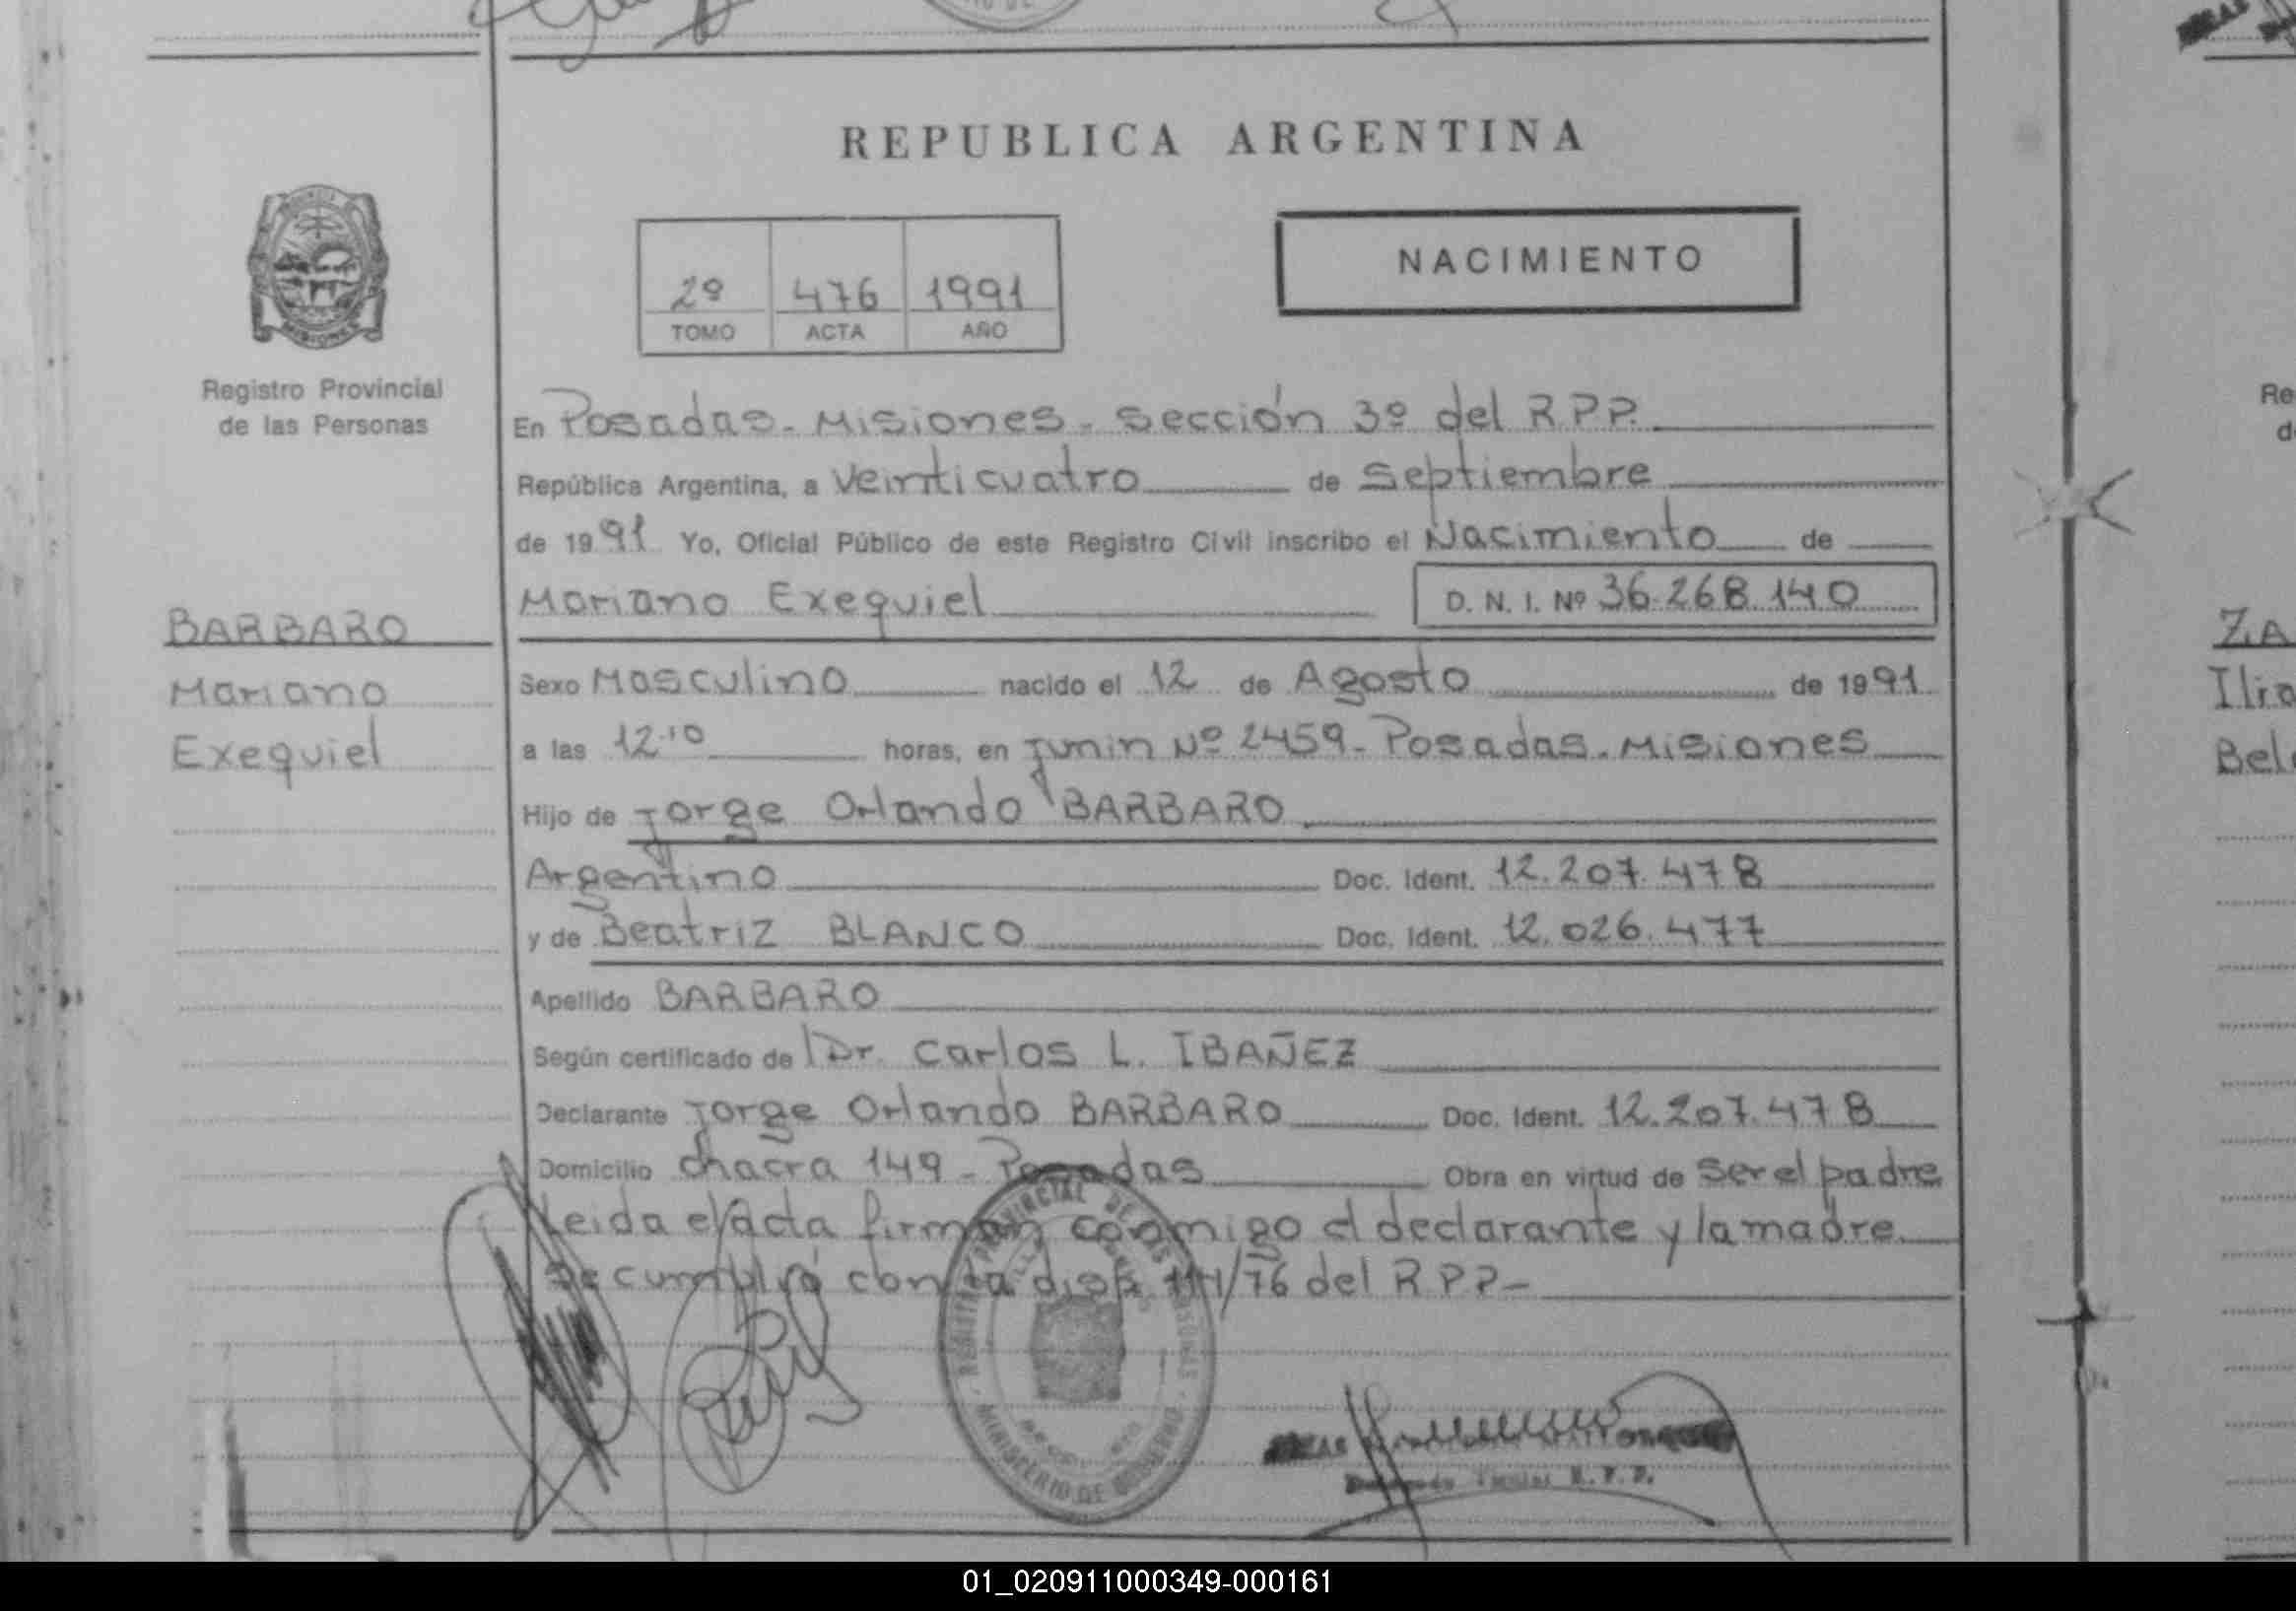 REPUBLICA ARGENTINA
NACIMIENTO
2º 476 1991
TOMO ACTA AÑO
MISIONES
Registro Provincial
de las Personas
BARBARO
Mariano
Exequiel
En Posadas - Misiones - Sección 3º del R.P.P.
República Argentina, a Veinticuatro de Septiembre
de 1991 Yo, Oficial Público de este Registro Civil inscribo el Nacimiento de
Mariano Exequiel D. N. I. Nº 36.268.140
Sexo Masculino nacido el 12 de Agosto de 1991
a las 12.10 horas, en Junin Nº 2459 - Posadas - Misiones
Hijo de Jorge Orlando BARBARO
Argentino Doc. Ident. 12.207.478
y de Beatriz BLANCO Doc. Ident. 12.026.477
Apellido BARBARO
Según certificado de Dr. Carlos L. IBAÑEZ
Declarante Jorge Orlando BARBARO Doc. Ident. 12.207.478
Domicilio Chacra 149 - Posadas Obra en virtud de ser el padre
Leida el acta firman conmigo el declarante y la madre
Se cumplió con la disp. 114/76 del R.P.P -
PROVINCIAL DE LAS PERSONAS
MINISTERIO DE GOBIERNO
R. P. P.
ZA
Re
d
01_020911000349-000161